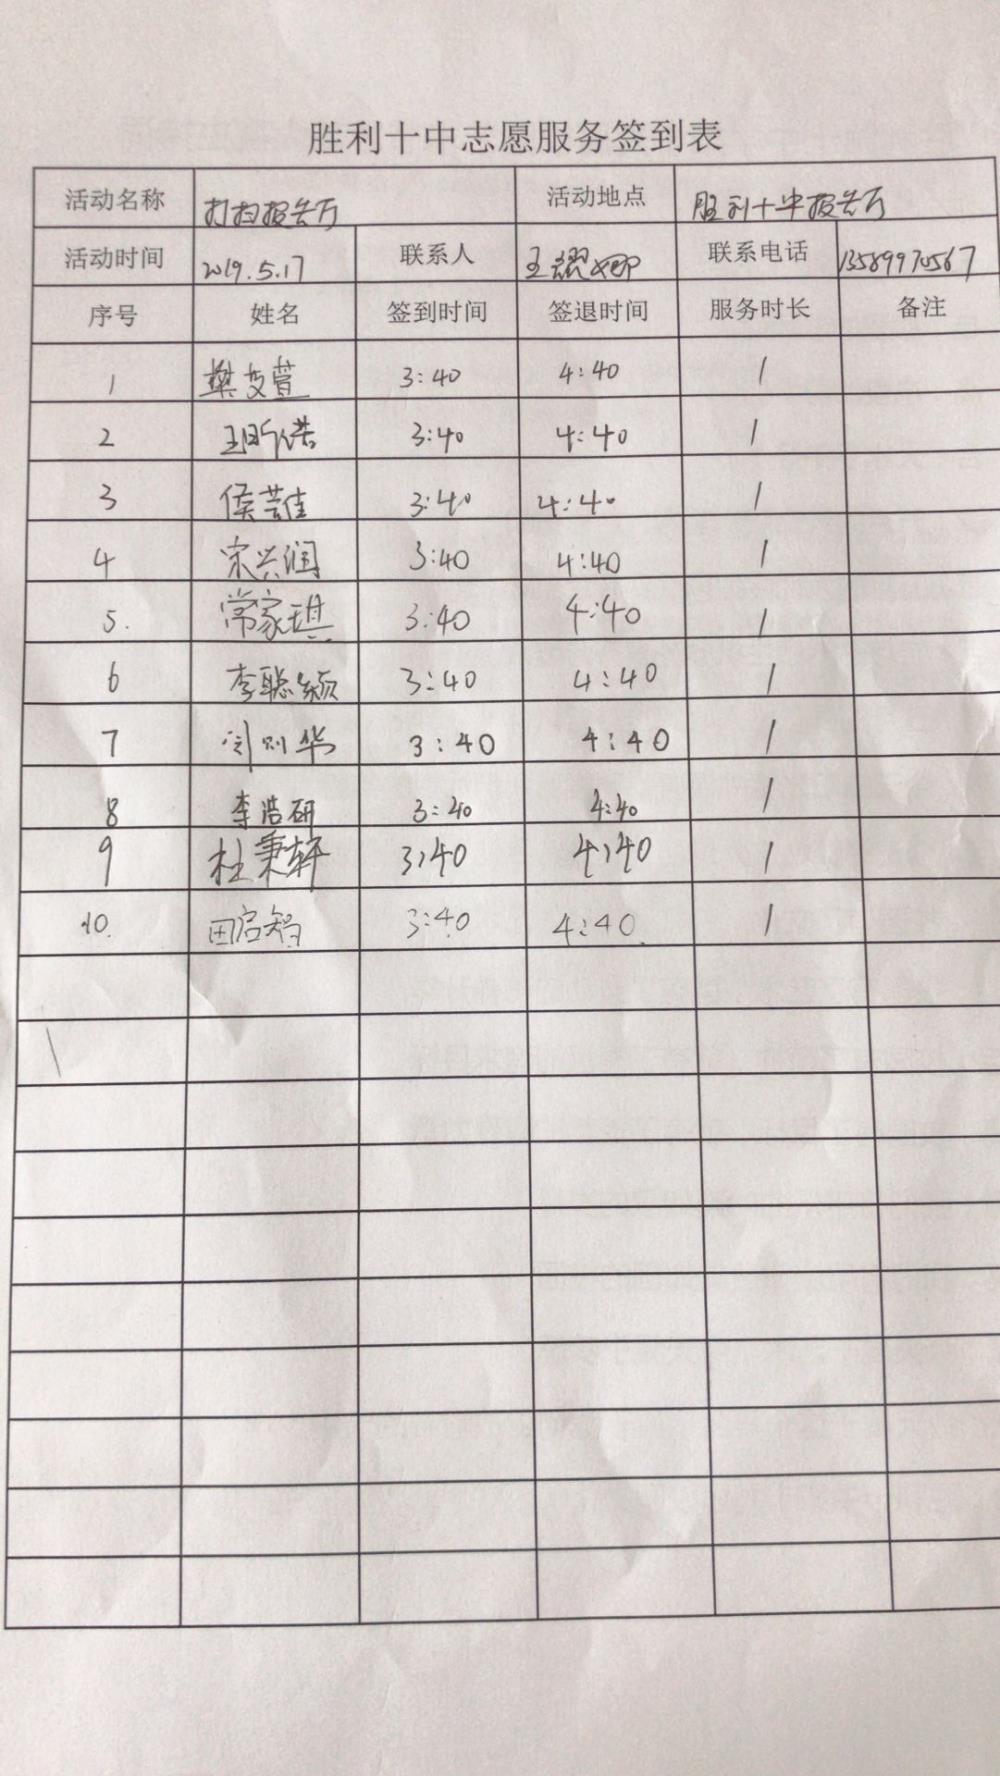 胜利十中志愿服务签到表
活动名称 打扫报告厅 活动地点 胜利十中报告厅
活动时间 2019.5.17 联系人 王耀娜 联系电话 13589970567
序号 姓名 签到时间 签退时间 服务时长 备注
1 樊艾萱 3:40 4:40 1
2 3:40 4:40 1
3 侯芸佳 3:40 4:40 1
4 宋兴润 3:40 4:40 1
5. 常家琪 3:40 4:40 1
6 李聪颖 3:40 4:40 1
7 3:40 4:40 1
8 李浩研 3:40 4:40 1
9 杜秉轩 3:40 4:40 1
10. 田启智 3:40 4:40 1